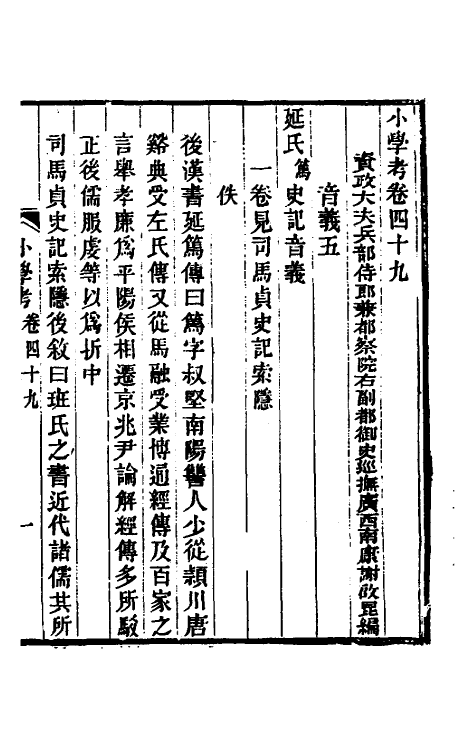 小學考卷四十九
資政大夫兵部侍郎兼都察院右副都御史巡撫廣西南康謝啟昆編
音義五
延氏篤史記音義
一卷見司馬貞史記索隱
佚
後漢書延篤傳曰篤字叔堅南陽犨人少從潁川唐
谿典受左氏傳又從馬融受業博通經傳及百家之
言舉孝廉爲平陽侯相遷京兆尹論解經傳多所駁
正後儒服虔等以爲折中
司馬貞史記索隱後敘曰班氏之書近代諸儒其所
小學考 卷四十九 一